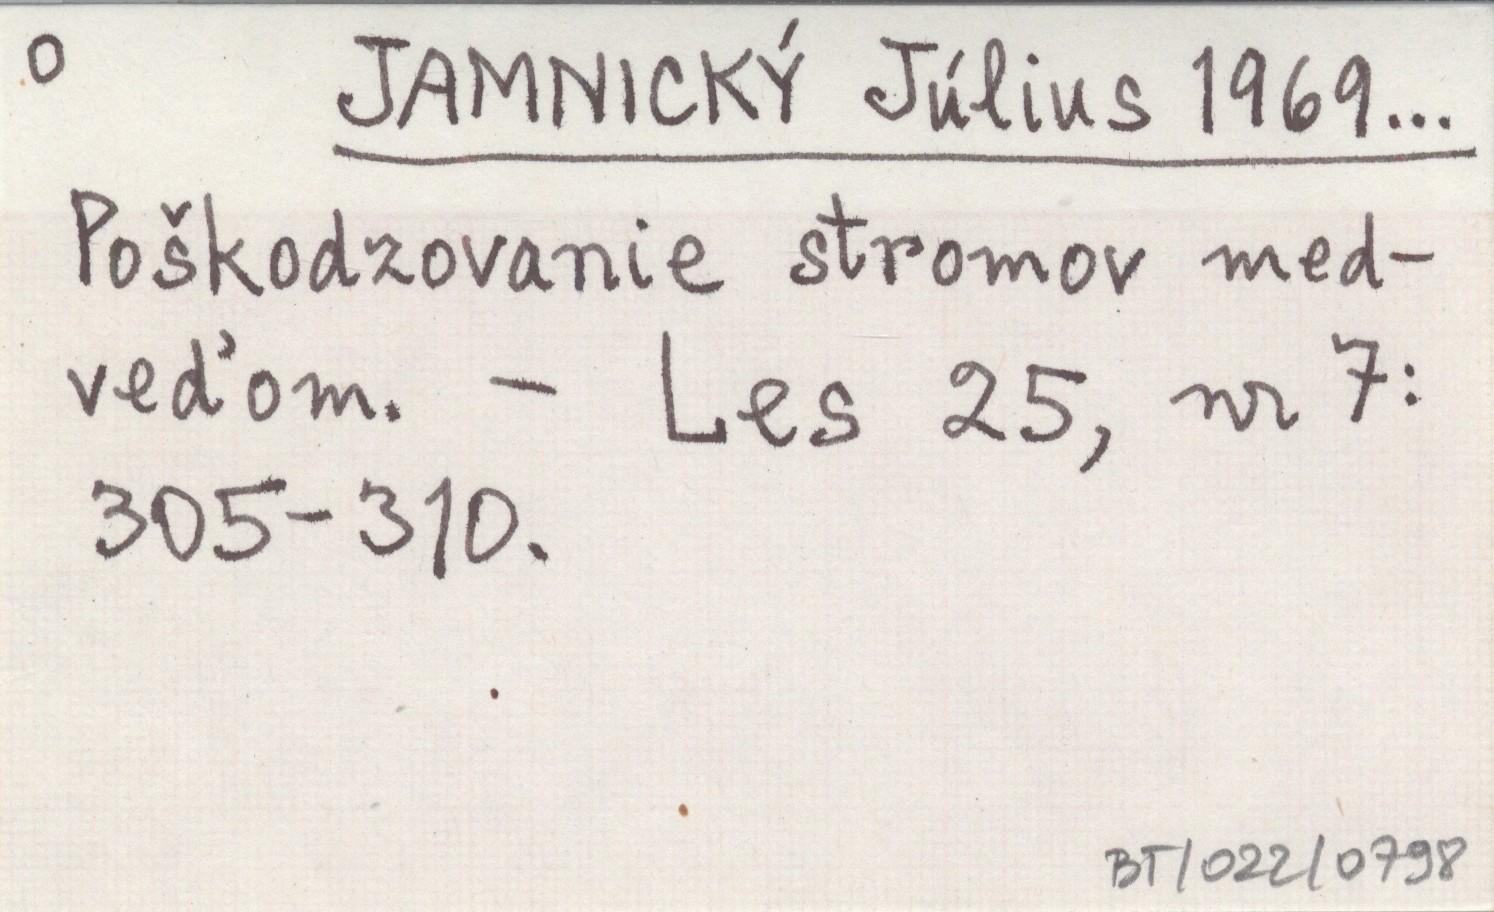 O JAMNICKÝ Július 1969...
Poškodzovanie stromov med-
veďom. - Les 25, nr 7:
305-310.
BT/022/0798